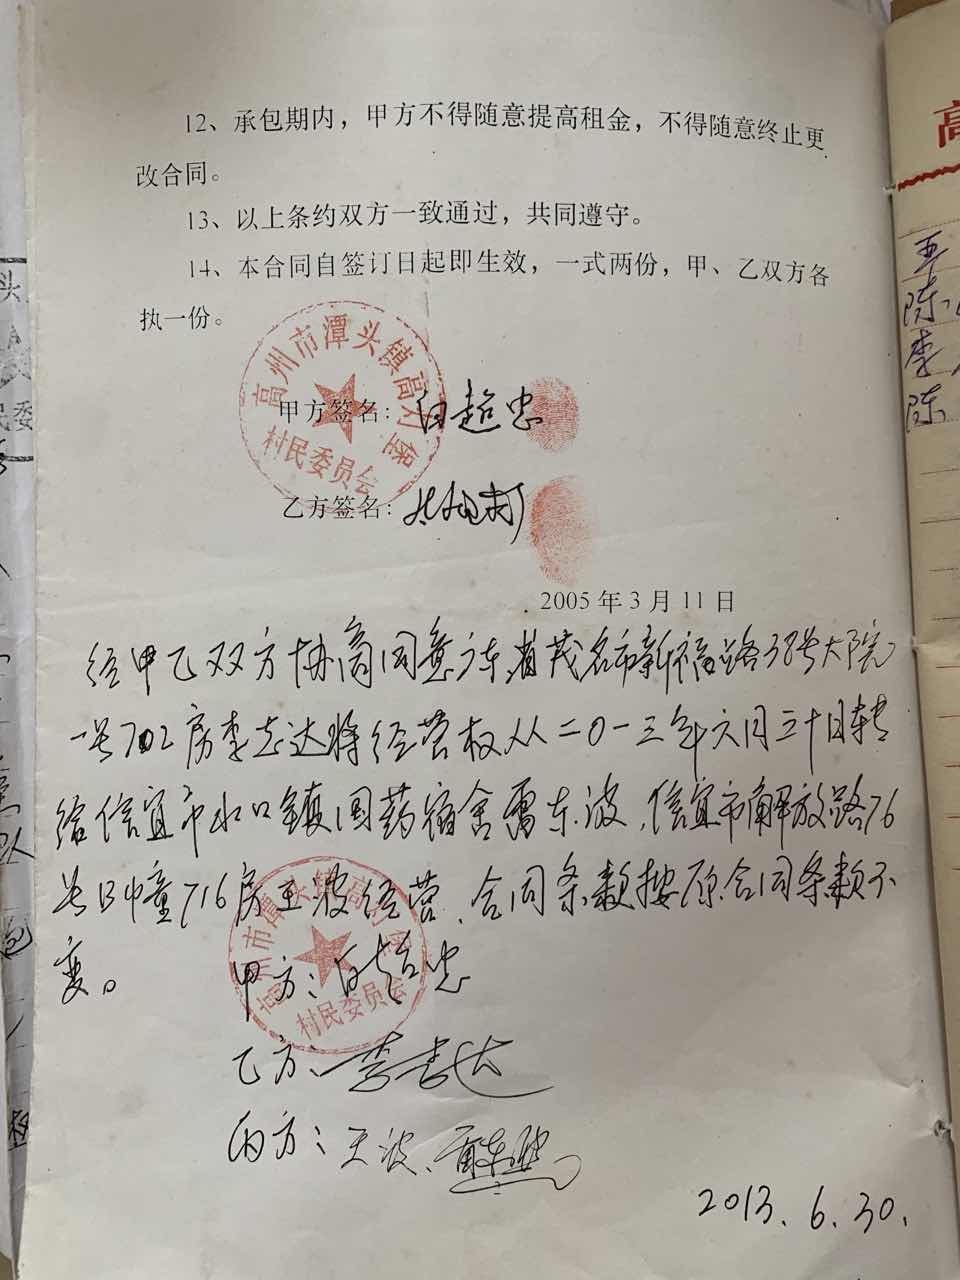 12、承包期内，甲方不得随意提高租金，不得随意终止更
改合同。
13、以上条约双方一致通过，共同遵守。
14、本合同自签订日起即生效，一式两份，甲、乙双方各
执一份。
高州市潭头镇高村
村民委员会
甲方签名：白超忠
乙方签名：
2005年3月11日
经甲乙双方协商同意广东省茂名市新福路38号大院
一号702房李志达将经营权从二0一三年六月三十日转
给信宜市水口镇国药宿舍雷东波、信宜市解放路76
号 716房王波经营、合同条款按原合同条款不
变。
高州市潭头镇高村
村民委员会
甲方：白超忠
乙方、李志达
丙方：王波、雷东波
2013.6.30.
高
王
陈
李
陈
头
民委